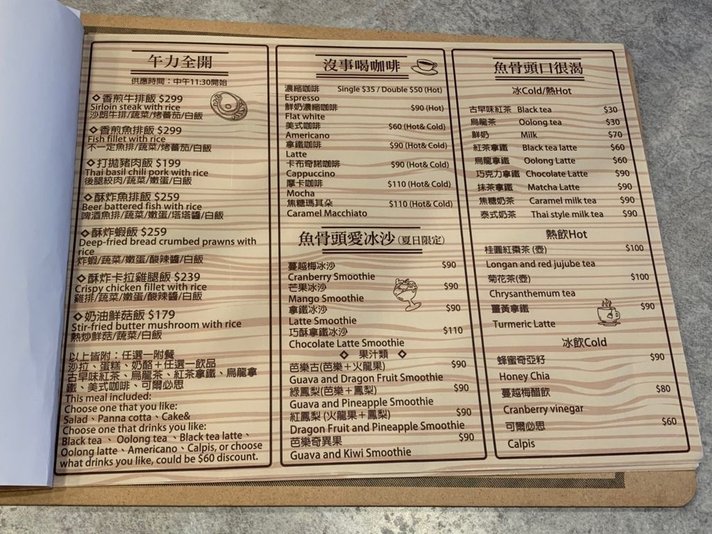 午力全開
供應時間：中午11:30開始
◇香煎牛排飯 $299
Sirloin steak with rice
沙朗牛排/蔬菜/烤蕃茄/白飯
◇香煎魚排飯 $299
Fish fillet with rice
不一定魚排/蔬菜/烤蕃茄/白飯
◇打拋豬肉飯 $199
Thai basil chili pork with rice
後腿絞肉/蔬菜/嫩蛋/白飯
◇酥炸魚排飯 $259
Beer battered fish with rice
啤酒魚排/蔬菜/嫩蛋/塔塔醬/白飯
◇酥炸蝦飯 $259
Deep-fried bread crumbed prawns with
rice
炸蝦/蔬菜/嫩蛋/酸辣醬/白飯
◇酥炸卡拉雞腿飯 $239
Crispy chicken fillet with rice
雞排/蔬菜/嫩蛋/酸辣醬/白飯
◇奶油鮮菇飯 $179
Stir-fried butter mushroom with rice
熱炒鮮菇/蔬菜/白飯
以上皆附：任選一附餐
沙拉、蛋糕、奶酪＋任選一飲品
古早味紅茶、烏龍茶、紅茶拿鐵、烏龍拿
鐵、美式咖啡、可爾必思
This meal included:
Choose one that you like:
Salad、Panna cotta、Cake&
Choose one that drinks you like:
Black tea、Oolong tea、Black tea latte、
Oolong latte、Americano、Calpis, or choose
what drinks you like, could be $60 discount.
沒事喝咖啡
濃縮咖啡 Single $35 / Double $50 (Hot)
Espresso
鮮奶濃縮咖啡 $90 (Hot)
Flat white
美式咖啡 $60 (Hot& Cold)
Americano
拿鐵咖啡 $90 (Hot& Cold)
Latte
卡布奇諾咖啡 $90 (Hot& Cold)
Cappuccino
摩卡咖啡 $110 (Hot& Cold)
Mocha
焦糖瑪其朵 $110 (Hot& Cold)
Caramel Macchiato
魚骨頭愛冰沙(夏日限定)
蔓越梅冰沙 $90
Cranberry Smoothie
芒果冰沙 $90
Mango Smoothie
拿鐵冰沙 $90
Latte Smoothie
巧酥拿鐵冰沙 $110
Chocolate Latte Smoothie
◇ 果汁類 ◇
芭樂古(芭樂＋火龍果) $90
Guava and Dragon Fruit Smoothie
綠鳳梨(芭樂＋鳳梨) $90
Guava and Pineapple Smoothie
紅鳳梨(火龍果＋鳳梨) $90
Dragon Fruit and Pineapple Smoothie
芭樂奇異果 $90
Guava and Kiwi Smoothie
魚骨頭口很渴
冰Cold/熱Hot
古早味紅茶 Black tea $30
烏龍茶 Oolong tea $30
鮮奶 Milk $70
紅茶拿鐵 Black tea latte $60
烏龍拿鐵 Oolong Latte $60
巧克力拿鐵 Chocolate Latte $90
抹茶拿鐵 Matcha Latte $90
焦糖奶茶 Caramel milk tea $90
泰式奶茶 Thai style milk tea $90
熱飲Hot
桂圓紅棗茶(壺) $100
Longan and red jujube tea
菊花茶(壺) $100
Chrysanthemum tea
薑黃拿鐵 $90
Turmeric Latte
冰飲Cold
蜂蜜奇亞籽 $90
Honey Chia
蔓越梅醋飲 $80
Cranberry vinegar
可爾必思 $60
Calpis